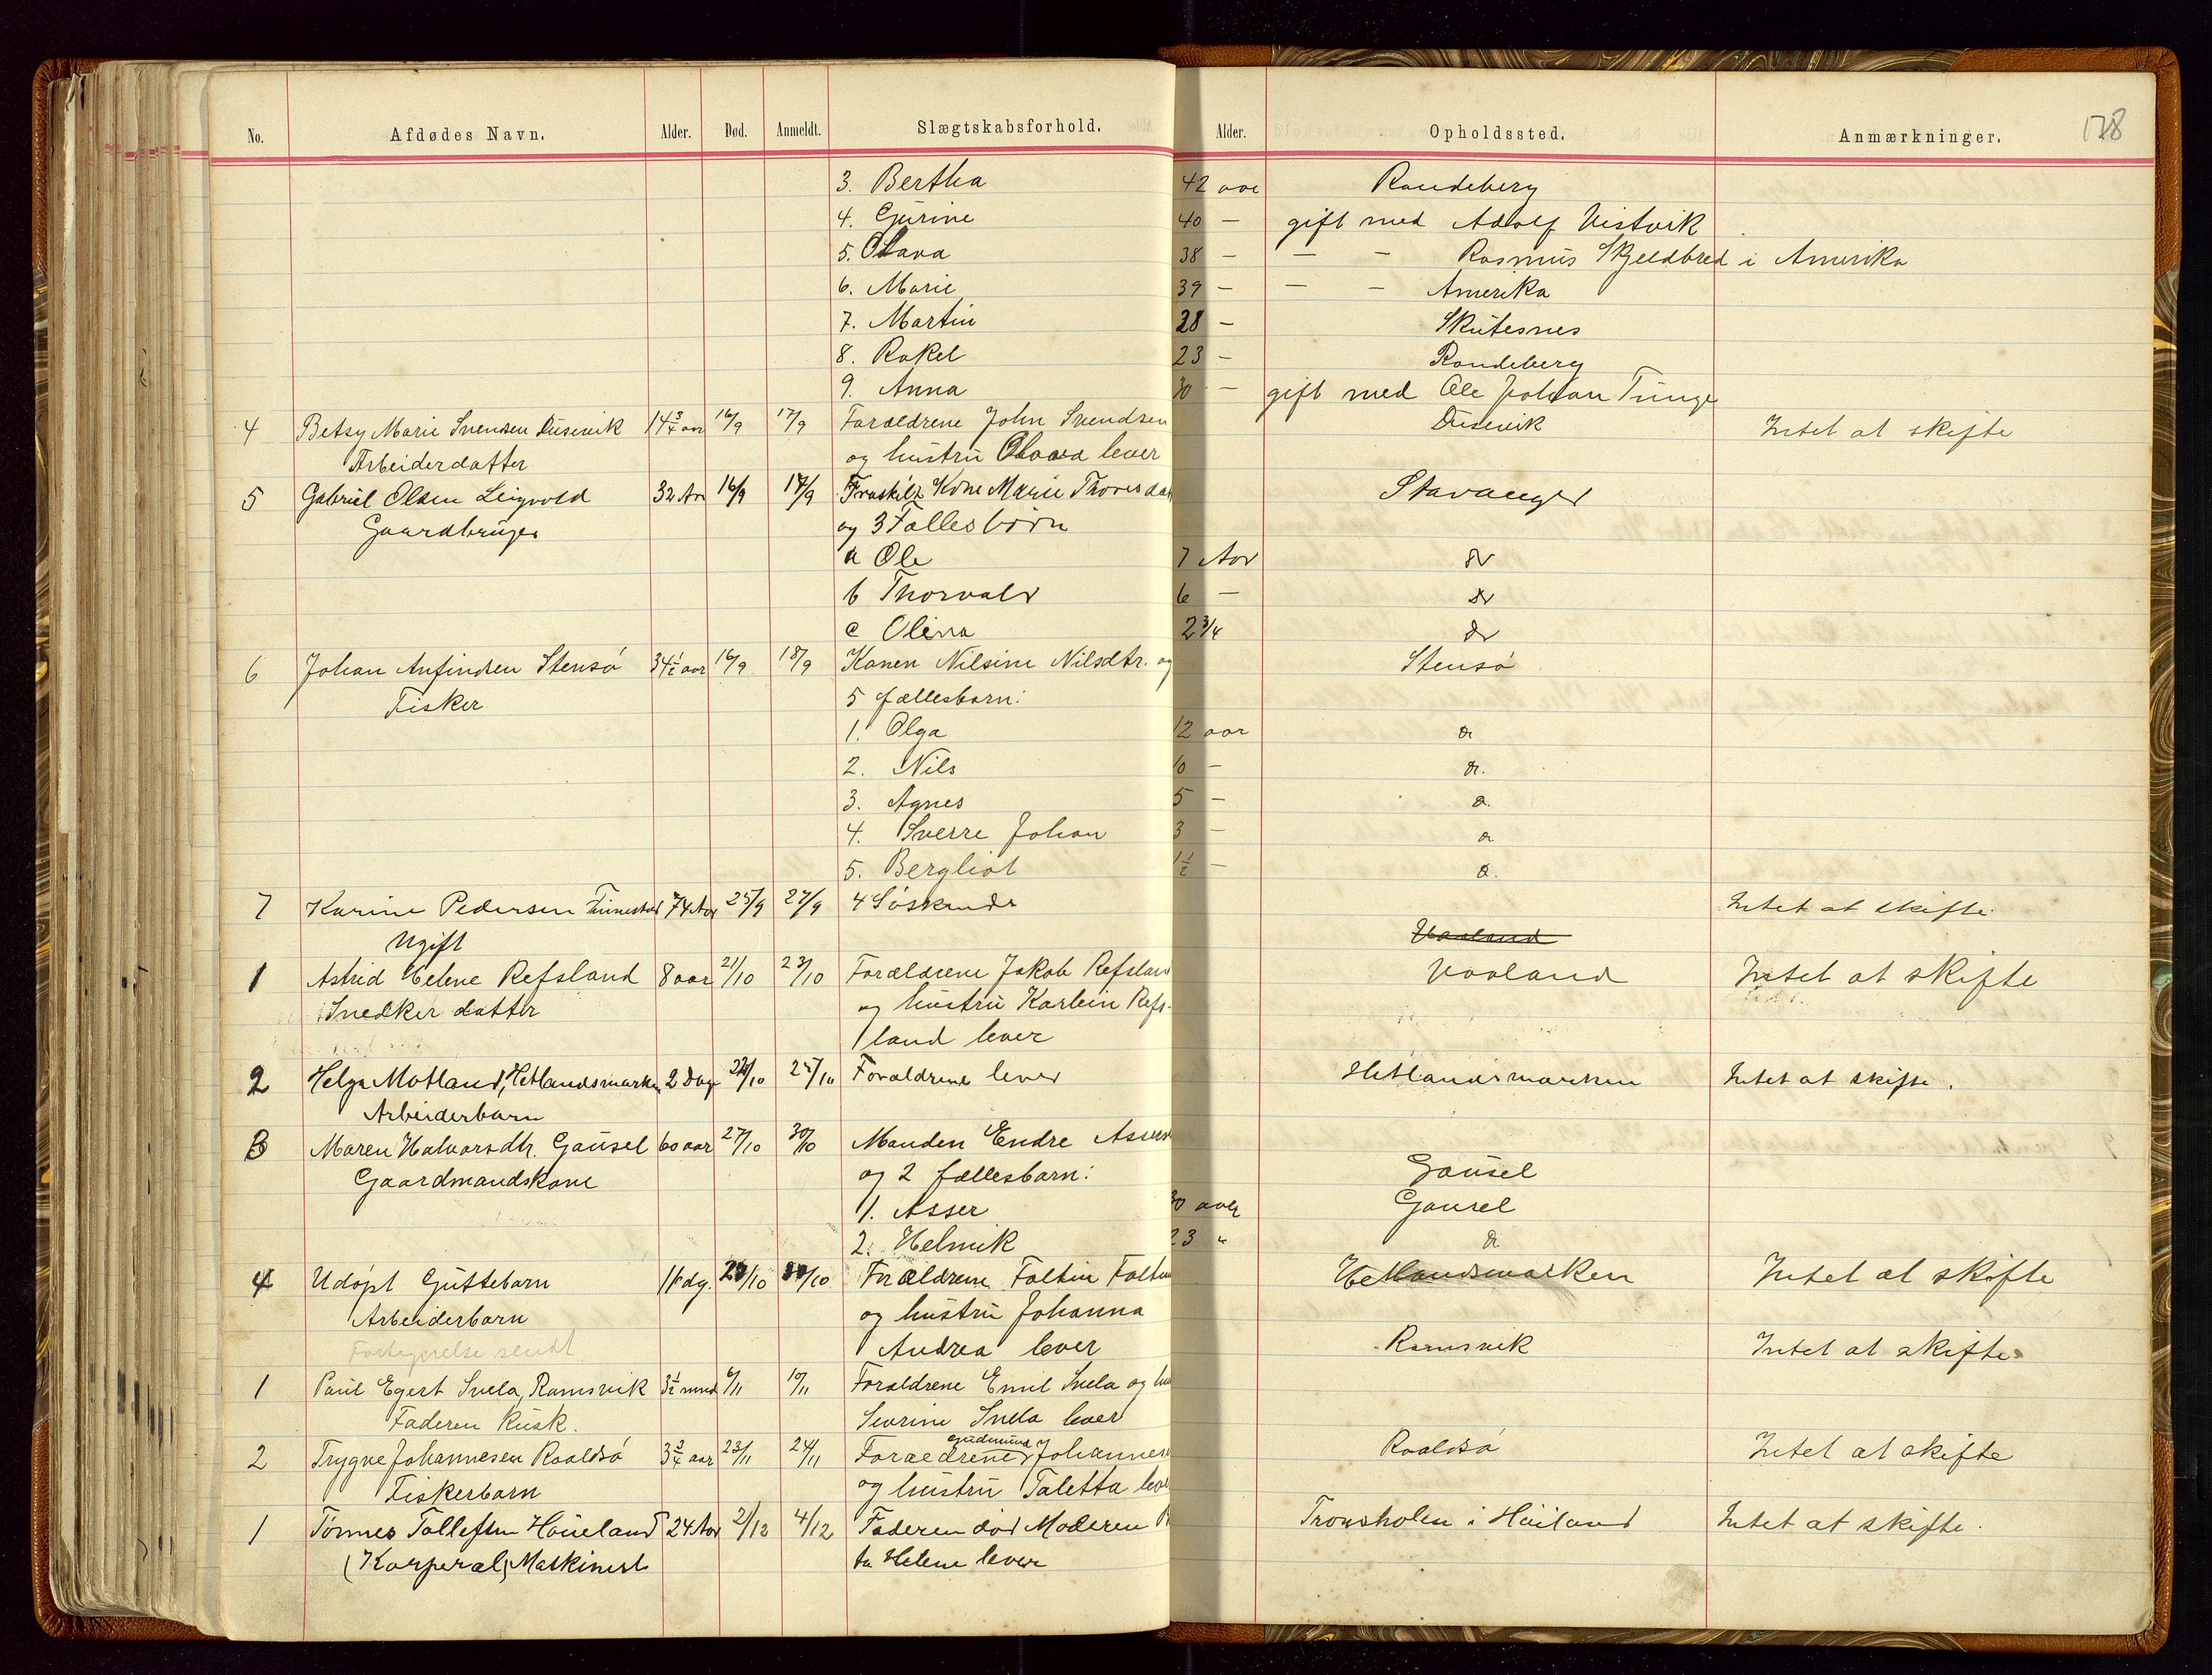 No. Afdødes Navn. Alder. Død. Anmeldt. Slægtskabsforhold. Alder. Opholdssted. Anmærkninger. 178
3. Bertha 42 aar Randeberg
4. Gurine 40 — gift med Adolf Vistvik
5. Olava 38 — — — Rasmus Skjeldbred i Amerika
6. Marie 39 — — — Amerika
7. Martin 28 — Skutesnes
8. Rakel 23 — Randeberg
9. Anna 30 — gift med Ole Johan Tunge
4 Betsy Marie Svensen Dusevik 14 3/4 aar 16/9 17/9 Forældrene John Svendsen Dusevik Intet at skifte
Arbeiderdatter og hustru Olava lever
5 Gabriel Olsen Leigvold 32 Aar 16/9 17/9 Fraskilt Kone Marie Thoresdat Stavanger
Gaardbruger og 3 Fællesbørn
a Ole 7 Aar do
b Thorvald 6 — do
c Olina 2 3/4 do
6 Johan Anfindsen Stensø 34 1/2 aar 16/9 18/9 Konen Nilsine Nilsdtr. og Stensø
Fisker 5 fællesbarn:
1. Olga 12 aar do
2. Nils 10 — do.
3. Agnes 5 — do.
4. Sverre Johan 3 — do
5. Bergliot 1 1/2 — do.
7 Karine Pedersen Finnestad 74 Aar 25/9 27/9 4 Søskende Intet at skifte.
Ugift Vaaland
1 Astrid Helene Refsland 8 aar 21/10 23/10 Forældrene Jakob Refsland Vaaland Intet at skifte
Snedker datter og hustru Karlein Refs-
land lever
2 Helga Motland, Hetlandsmarken 2 Dage 24/10 25/10 Forældrene lever Hetlandsmarken Intet at skifte.
Arbeiderbarn
3 Maren Halvorsdtr. Gausel 60 aar 27/10 30/10 Manden Endre Assers
Gaardmandskone og 2 fællesbarn: Gausel
1. Asser 30 aar Gausel
2. Helmik 23 " do
4 Udøpt Guttebarn 11 dg. /10 /10 Forældrene Foltin Foltin Hetlandsmarken Intet at skifte
Arbeiderbarn og hustru Johanna
Fortegnelse sendt Andrea lever Ramsvik Intet at skifte
1 Paul Egert Svela, Ramsvik 3 1/2 mnd 6/11 10/11 Forældrene Emil Svela og hu
Faderen Kusk. Sevrine Svela lever
2 Trygve Johannesen Roaldsø 3 3/4 aar 23/11 24/11 Forældrene Gudmund Johannes Roaldsø Intet at skifte
Fiskerbarn og hustru Taletta lev
1 Tønnes Tollefsen Høieland 24 Aar 2/12 4/12 Faderen død Moderen Tronsholen i Høiland Intet at skifte.
(Korperal) Maskinist ta Helene lever